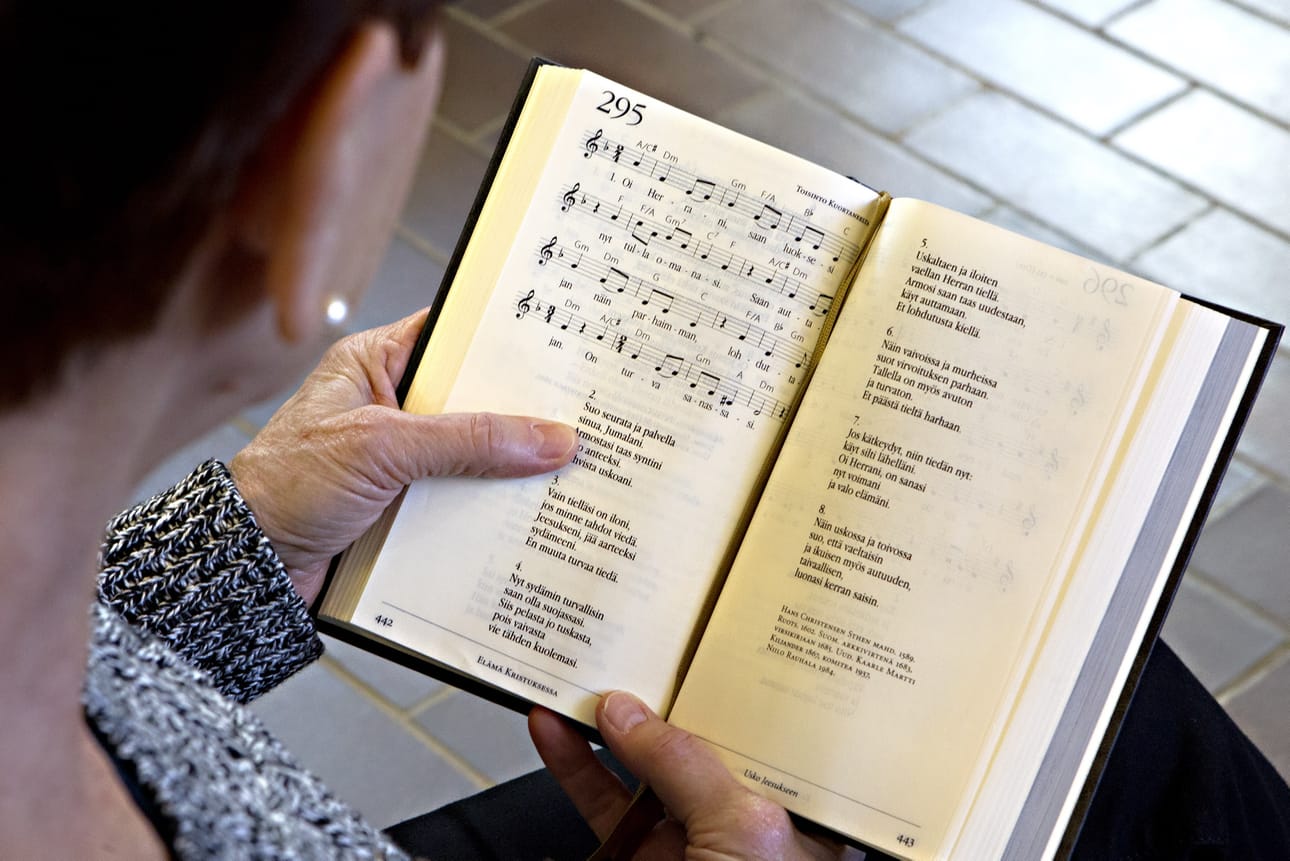 295
Toisinto Kuortaneelta
A/C# Dm Gm F/A B♭ C
1. Oi Her - ra - ni, saan luok - se si
F F/A Gm7 C7 F A/C# Dm
nyt tul - la o - ma - na - si. Saan aut - ta
Gm Dm G C F/A B♭ Gm
jan näin par - haim - man, loh - dut - ta
Dm A/C# Dm Gm A Dm
jan. On tur - va sa - nas - sa - si.
2.
Suo seurata ja palvella
sinua, Jumalani.
Armostasi taas syntini
anteeksi.
uskoani.
3.
Vain tielläsi on iloni,
jos minne tahdot viedä.
Jeesukseni, jää aarteeksi
sydämeeni.
En muuta turvaa tiedä.
4.
Nyt sydämin turvallisin
saan olla suojassasi.
Siis pelasta jo tuskasta,
pois vaivasta
vie tähden kuolemasi.
442
Elämä Kristuksessa
5.
Uskaltaen ja iloiten
vaellan Herran tiellä.
Armosi saan taas uudestaan,
käyt auttamaan.
Et lohdutusta kiellä.
6.
Näin vaivoissa ja murheissa
suot virvoituksen parhaan.
Tallella on myös avuton
ja turvaton.
Et päästä tieltä harhaan.
7.
Jos kätkeydyt, niin tiedän nyt:
käyt silti lähelläni.
Oi Herrani, on sanasi
nyt voimani
ja valo elämäni.
8.
Näin uskossa ja toivossa
suo, että vaeltaisin
ja ikuisen myös autuuden,
taivaallisen,
luonasi kerran saisin.
Hans Christensen Sthen mahd. 1589.
Ruots. 1602. Suom. arkkivirtenä 1683,
virsikirjaan 1685. Uud. Kaarle Martti
Kiljander 1867, komitea 1937,
Niilo Rauhala 1984.
Usko Jeesukseen
443
296